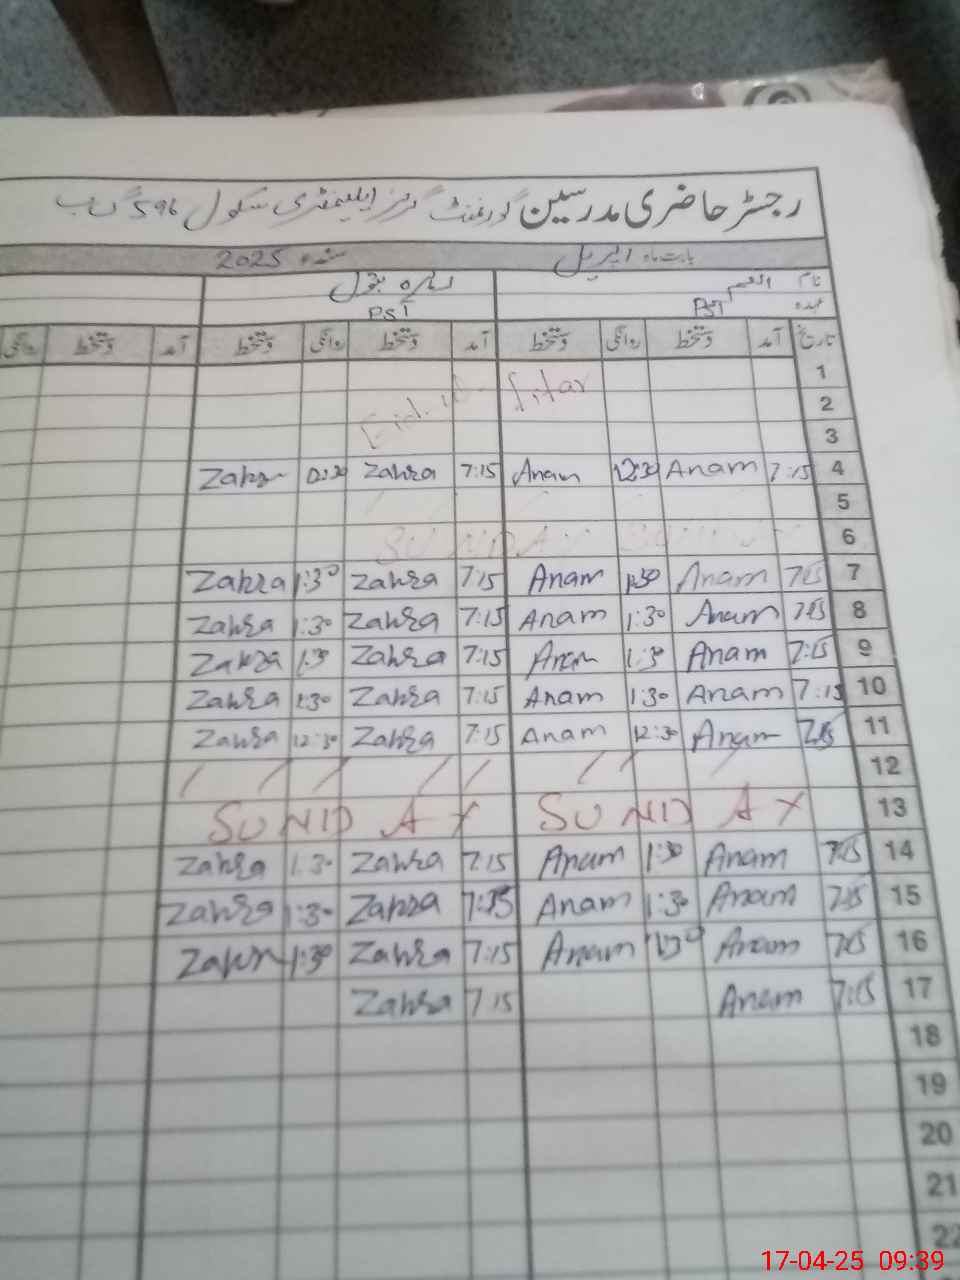 رجسٹر حاضری مدرسین گورنمنٹ گرلز ایلیمنٹری سکول 596 گ ب
بابت ماہ اپریل 2025
نام انعم زہرہ بتول
عہدہ PST PST
تاریخ آمد دستخط روانگی دستخط آمد دستخط روانگی دستخط آمد دستخط روانگی
1
2 Eid ul fitar
3
4 7:15 Anam 12:30 Anam 7:15 Zahra 12:30 Zahra
5
6 SUNDAY SUNDAY
7 7:15 Anam 1:30 Anam 7:15 Zahra 1:30 Zahra
8 7:15 Anam 1:30 Anam 7:15 Zahra 1:30 Zahra
9 7:15 Anam 1:30 Anam 7:15 Zahra 1:30 Zahra
10 7:15 Anam 1:30 Anam 7:15 Zahra 1:30 Zahra
11 7:15 Anam 12:30 Anam 7:15 Zahra 12:30 Zahra
12
13 SUNDAY SUNDAY
14 7:15 Anam 1:30 Anam 7:15 Zahra 1:30 Zahra
15 7:15 Anam 1:30 Anam 7:15 Zahra 1:30 Zahra
16 7:15 Anam 1:30 Anam 7:15 Zahra 1:30 Zahra
17 7:15 Anam 7:15 Zahra
18
19
20
21
22
17-04-25 09:39